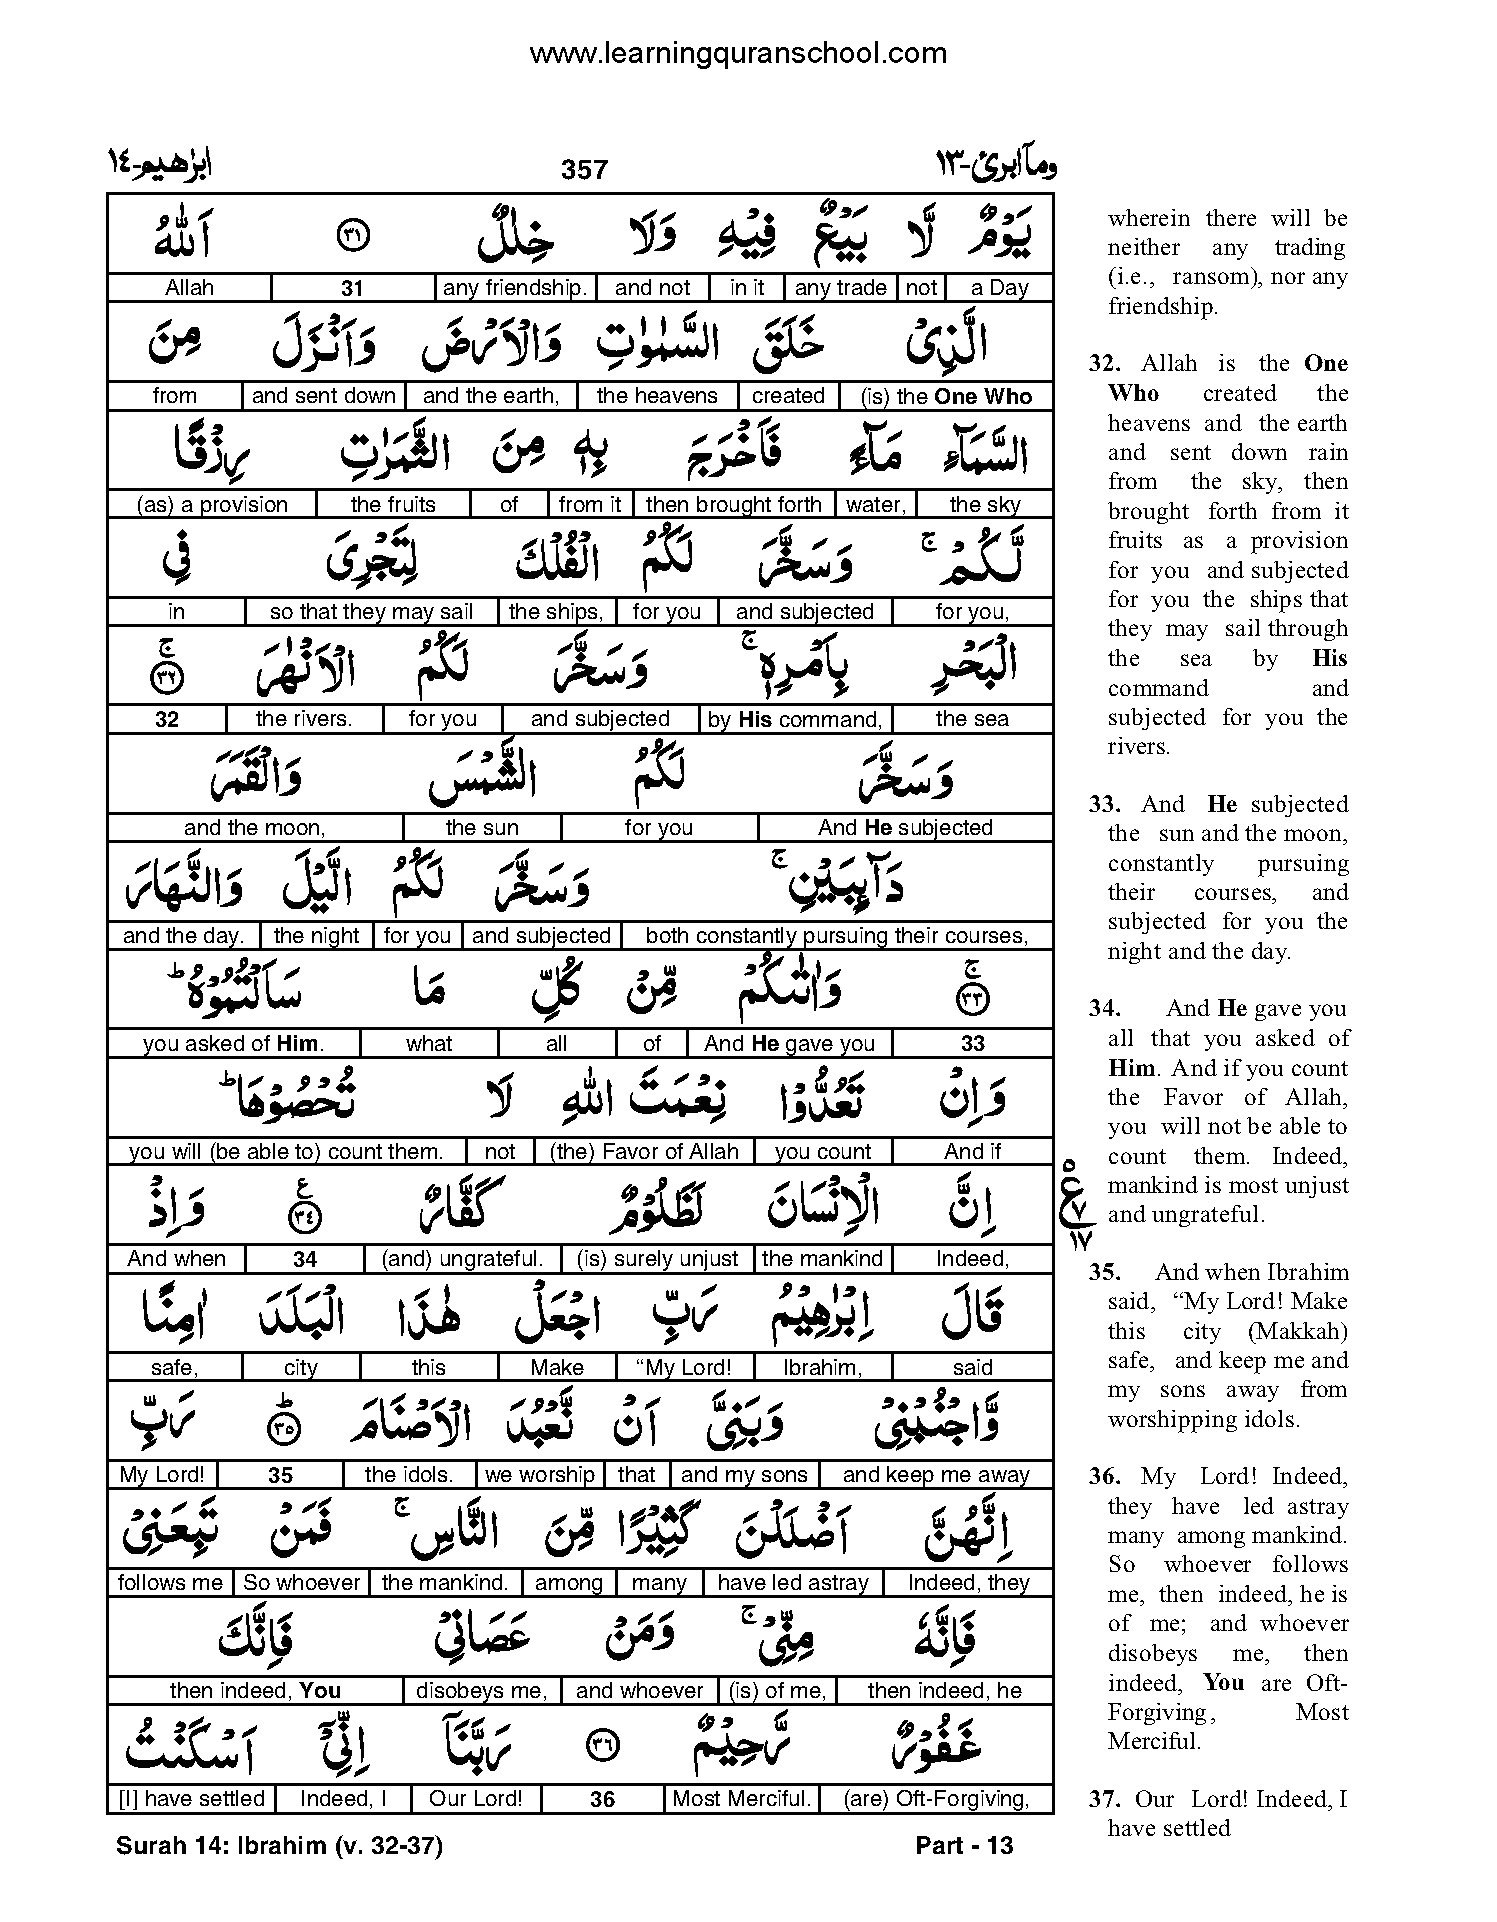 www.learningquranschool.com
ابرٰهيم-١٤ 357 ومآ ابرئ-١٣
يَوْمٌ لَّا بَيْعٌ فِيْهِ وَلَا خِلٰلٌ ٣١ اَللّٰهُ
Allah 31 any friendship. and not in it any trade not a Day
الَّذِيْ خَلَقَ السَّمٰوٰتِ وَالْاَرْضَ وَاَنْزَلَ مِنَ
from and sent down and the earth, the heavens created (is) the One Who
السَّمَآءِ مَآءً فَاَخْرَجَ بِهٖ مِنَ الثَّمَرٰتِ رِزْقًا
(as) a provision the fruits of from it then brought forth water, the sky
لَّكُمْ ۚ وَسَخَّرَ لَكُمُ الْفُلْكَ لِتَجْرِيَ فِي
in so that they may sail the ships, for you and subjected for you,
الْبَحْرِ بِاَمْرِهٖ ۚ وَسَخَّرَ لَكُمُ الْاَنْهٰرَ ۚ ٣٢
32 the rivers. for you and subjected by His command, the sea
وَسَخَّرَ لَكُمُ الشَّمْسَ وَالْقَمَرَ
and the moon, the sun for you And He subjected
دَآئِبَيْنِ ۚ وَسَخَّرَ لَكُمُ الَّيْلَ وَالنَّهَارَ
and the day. the night for you and subjected both constantly pursuing their courses,
ۚ ٣٣ وَاٰتٰىكُمْ مِّنْ كُلِّ مَا سَاَلْتُمُوْهُ ؕ
you asked of Him. what all of And He gave you 33
وَاِنْ تَعُدُّوْا نِعْمَتَ اللّٰهِ لَا تُحْصُوْهَا ؕ
you will (be able to) count them. not (the) Favor of Allah you count And if
اِنَّ الْاِنْسَانَ لَظَلُوْمٌ كَفَّارٌ ٣٤ ع وَاِذْ
And when 34 (and) ungrateful. (is) surely unjust the mankind Indeed,
٥ ع ٧ ١٧
قَالَ اِبْرٰهِيْمُ رَبِّ اجْعَلْ هٰذَا الْبَلَدَ اٰمِنًا
safe, city this Make “My Lord! Ibrahim, said
وَّاجْنُبْنِيْ وَبَنِيَّ اَنْ نَّعْبُدَ الْاَصْنَامَ ؕ ٣٥ رَبِّ
My Lord! 35 the idols. we worship that and my sons and keep me away
اِنَّهُنَّ اَضْلَلْنَ كَثِيْرًا مِّنَ النَّاسِ ۚ فَمَنْ تَبِعَنِيْ
follows me So whoever the mankind. among many have led astray Indeed, they
فَاِنَّهٗ مِنِّيْ ۚ وَمَنْ عَصَانِيْ فَاِنَّكَ
then indeed, You disobeys me, and whoever (is) of me, then indeed, he
غَفُوْرٌ رَّحِيْمٌ ٣٦ رَبَّنَآ اِنِّيْٓ اَسْكَنْتُ
[I] have settled Indeed, I Our Lord! 36 Most Merciful. (are) Oft-Forgiving,
wherein there will be
neither any trading
(i.e., ransom), nor any
friendship.
32. Allah is the One
Who created the
heavens and the earth
and sent down rain
from the sky, then
brought forth from it
fruits as a provision
for you and subjected
for you the ships that
they may sail through
the sea by His
command and
subjected for you the
rivers.
33. And He subjected
the sun and the moon,
constantly pursuing
their courses, and
subjected for you the
night and the day.
34. And He gave you
all that you asked of
Him. And if you count
the Favor of Allah,
you will not be able to
count them. Indeed,
mankind is most unjust
and ungrateful.
35. And when Ibrahim
said, “My Lord! Make
this city (Makkah)
safe, and keep me and
my sons away from
worshipping idols.
36. My Lord! Indeed,
they have led astray
many among mankind.
So whoever follows
me, then indeed, he is
of me; and whoever
disobeys me, then
indeed, You are Oft-
Forgiving, Most
Merciful.
37. Our Lord! Indeed, I
have settled
Surah 14: Ibrahim (v. 32-37) Part - 13